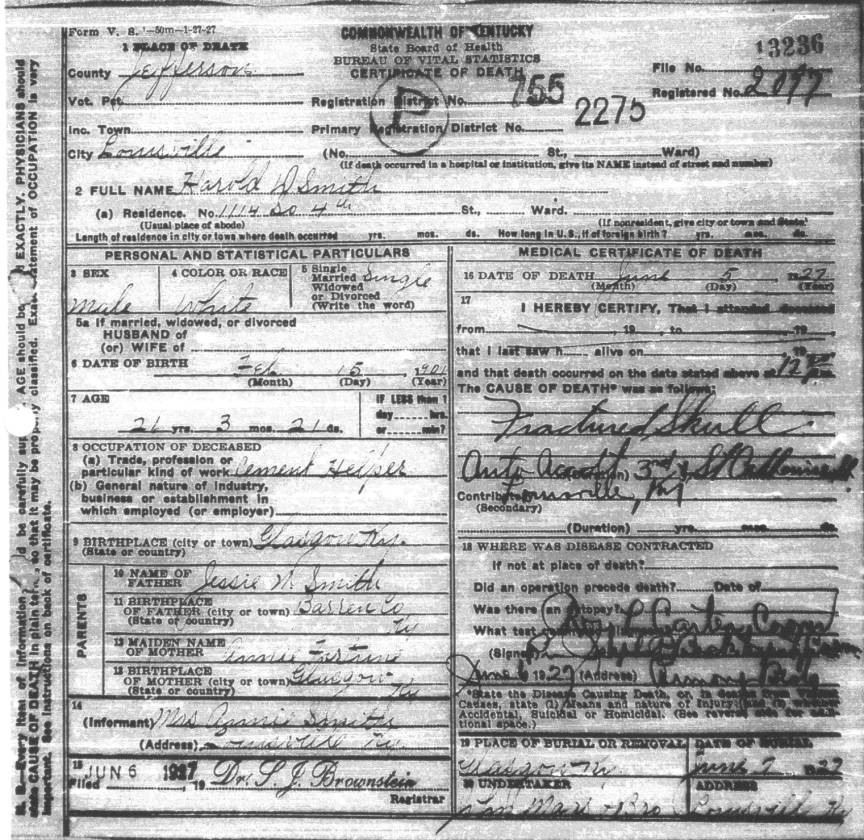 Form V. S. 1-50m-1-27-27
COMMONWEALTH OF KENTUCKY
State Board of Health
BUREAU OF VITAL STATISTICS
CERTIFICATE OF DEATH
13236
File No.
Registered No. 2097
1 PLACE OF DEATH
County Jefferson
Vot. Pct.
Registration District No. 755
P
2275
Inc. Town
Primary Registration District No.
City Louisville (No. St., Ward)
(If death occurred in a hospital or institution, give its NAME instead of street and number)
2 FULL NAME Harold D Smith
(a) Residence. No. 1114 So 4th St., Ward.
(Usual place of abode) (If nonresident, give city or town and State)
Length of residence in city or town where death occurred yrs. mos. ds. How long in U. S., if of foreign birth? yrs. mos. ds.
PERSONAL AND STATISTICAL PARTICULARS
3 SEX
male
4 COLOR OR RACE
White
5 Single
Married
Widowed
or Divorced
(Write the word)
Single
5a If married, widowed, or divorced
HUSBAND of
(or) WIFE of
6 DATE OF BIRTH Feb 15, 1901
(Month) (Day) (Year)
7 AGE
26 yrs. 3 mos. 21 ds.
IF LESS than 1
day hrs.
or min?
8 OCCUPATION OF DECEASED
(a) Trade, profession or
particular kind of work Cement Helper
(b) General nature of industry,
business or establishment in
which employed (or employer)
9 BIRTHPLACE (city or town) Glasgow Ky.
(State or country)
PARENTS
10 NAME OF
FATHER Jessie M. Smith
11 BIRTHPLACE
OF FATHER (city or town) Barren Co
(State or country) Ky
12 MAIDEN NAME
OF MOTHER Annie Fortune
13 BIRTHPLACE
OF MOTHER (city or town) Glasgow
(State or country) Ky
14
(Informant) Mrs Annie Smith
(Address) Louisville Ky
15
Filed JUN 6 1927 19 Dr. S. J. Brownstein
Registrar
MEDICAL CERTIFICATE OF DEATH
16 DATE OF DEATH June 5 1927
(Month) (Day) (Year)
17
I HEREBY CERTIFY, That I attended deceased
from 19 , to 19
that I last saw h alive on 19
and that death occurred on the date stated above at 12
The CAUSE OF DEATH* was as follows:
Fractured Skull
Auto Accdt 3rd &
(Duration)
Contributory Louisville, Ky
(Secondary)
(Duration) yrs. mos. ds.
18 WHERE WAS DISEASE CONTRACTED
If not at place of death?
Did an operation precede death? Date of
Was there an autopsy?
What test Roy L Carter
(Signed)
June 6 1927 (Address) Armory
*State the Disease Causing Death, or, in deaths from Violent
Causes, state (1) Means and nature of Injury; and (2) whether
Accidental, Suicidal or Homicidal. (See reverse side for addi-
tional space.)
19 PLACE OF BURIAL OR REMOVAL
Glasgow Ky.
DATE OF BURIAL
June 7 1927
20 UNDERTAKER
Bro
ADDRESS
Louisville Ky
N. B.—Every item of information should be carefully supplied. AGE should be EXACTLY. PHYSICIANS should
state CAUSE OF DEATH in plain terms, so that it may be properly classified. Exact statement of OCCUPATION is very
important. See instructions on back of certificate.